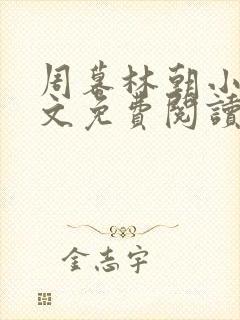 周暮林朝小
文免費閱讀
金志宇